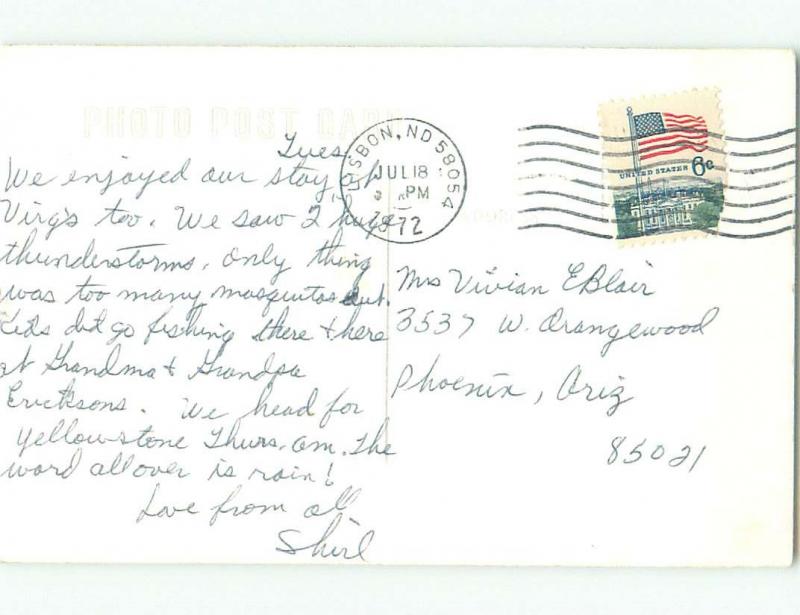 PHOTO POST CARD
Tues.
We enjoyed our stay at
Virg's too. We saw 2 huge
thunderstorms, only thing
was too many mosquitos out.
Kids did go fishing there + here
at Grandma + Grandpa
Ericksons. We head for
Yellowstone Thurs. am. The
word all over is rain!
Love from all
Shirl
LISBON, ND 58054
JUL 18
PM
1972
UNITED STATES 6c
Mrs Vivian E Blair
3537 W. Orangewood
Phoenix, Ariz
85021